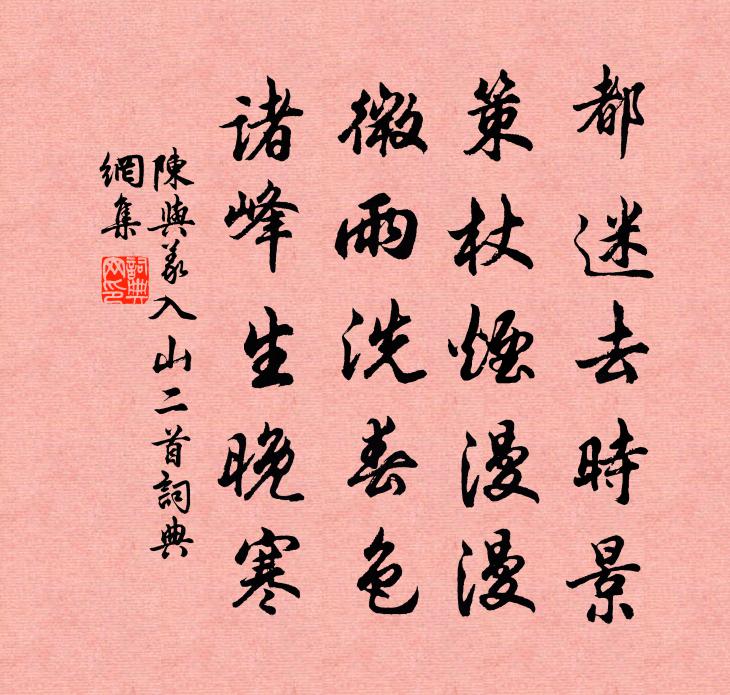 都迷去時景
策杖煙漫漫
微雨洗春色
諸峰生晚寒
陳與義入山二首詞典
網集
詞典網印